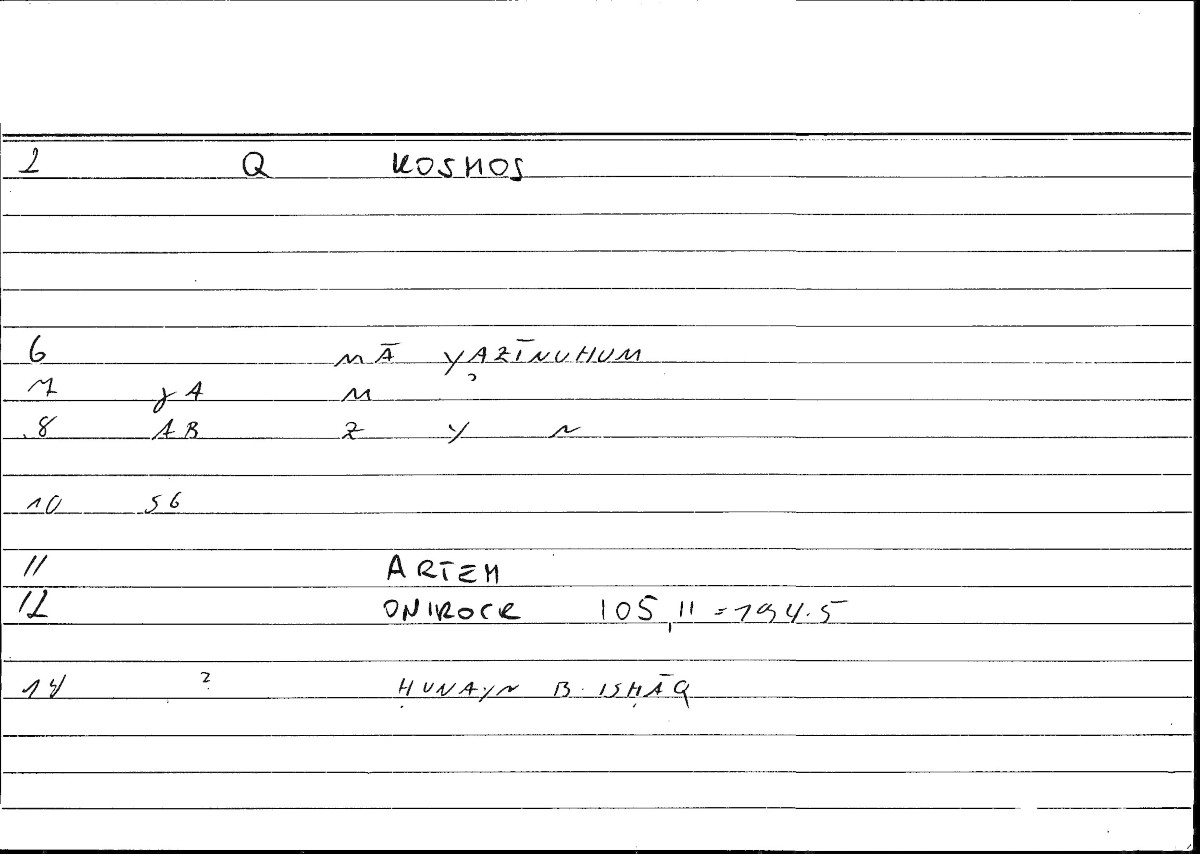 2 Q KOSMOS
6 MĀ YAZĪNUHUM
7 γA M
8 AB Z Y N
10 56
11 ARTEM
12 ONIROCR 105,11 = 194.5
14 2 ḤUNAYN B. ISḤĀQ